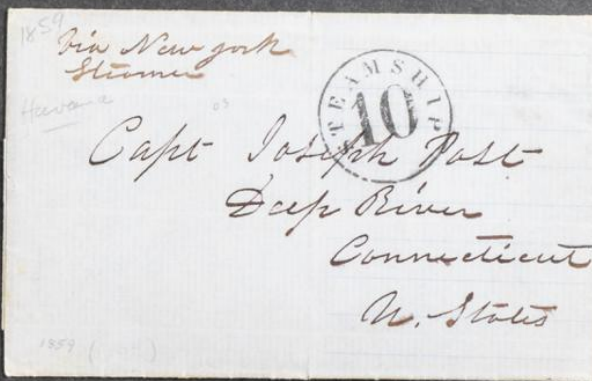 1859
Via New york
Steamer
Havana
STEAMSHIP
10
03
Capt Joseph Post
Deep River
Connecticut
U. States
1859